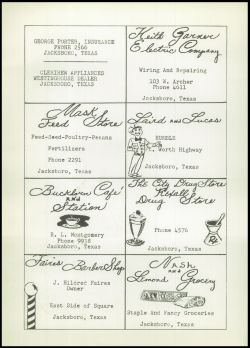 GEORGE PORTER, INSURANCE
PHONE 2566
JACKSBORO, TEXAS
CLERIHEW APPLIANCES
WESTINGHOUSE DEALER
JACKSBORO, TEXAS
Keith Garner
Electric Company
Wiring And Repairing
103 W. Archer
Phone 4011
Jacksboro, Texas
Mask
Feed Store
Feed-Seed-Poultry-Pecans
Fertilizers
Phone 2291
Jacksboro, Texas
Laird and Lucas
HUMBLE
Worth Highway
Jacksboro, Texas
Buckhorn Café
AND
Station
R. L. Montgomery
Phone 9938
Jacksboro, Texas
The City Drug Store
Rexall
Drug Store
Phone 4576
Jacksboro, Texas
Faires Barber Shop
J. Hildred Faires
Owner
East Side of Square
Jacksboro, Texas
Nash
AND
Lemond Grocery
Staple And Fancy Groceries
Jacksboro, Texas